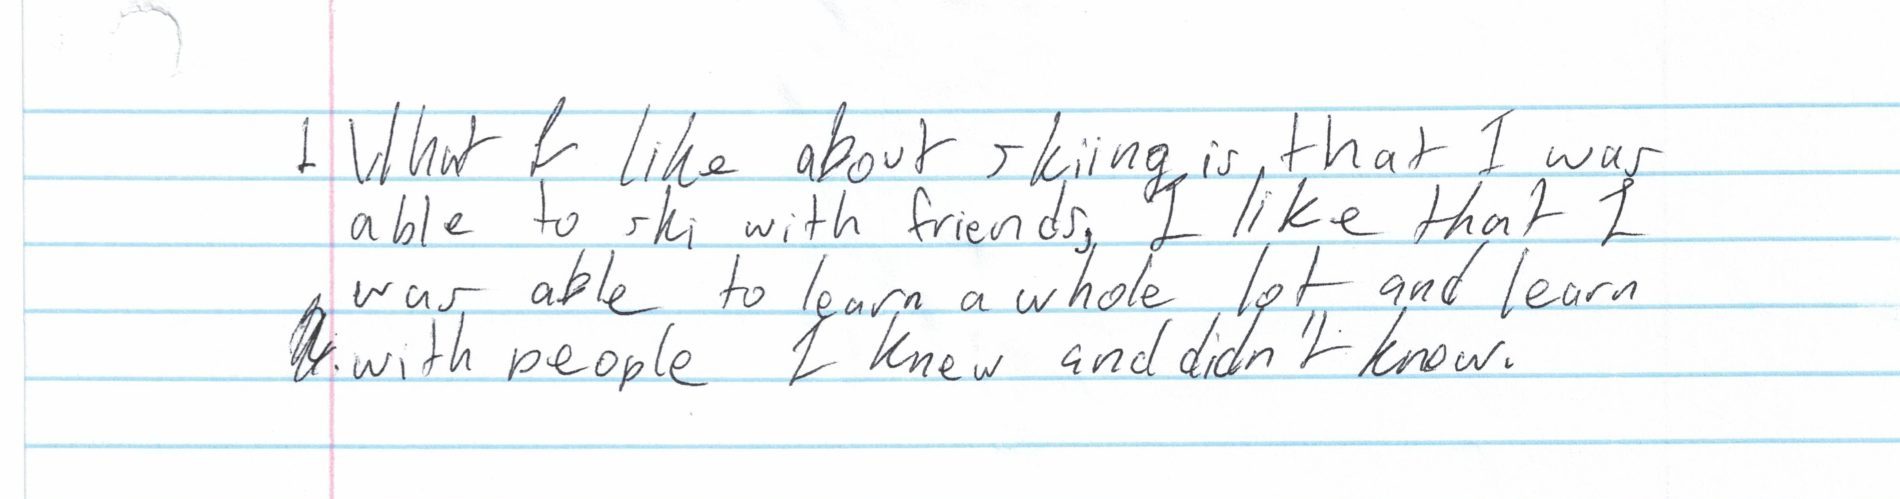 1 What I like about skiing is that I was
able to ski with friends, I like that I
was able to learn a whole lot and learn
with people I knew and didn't know.